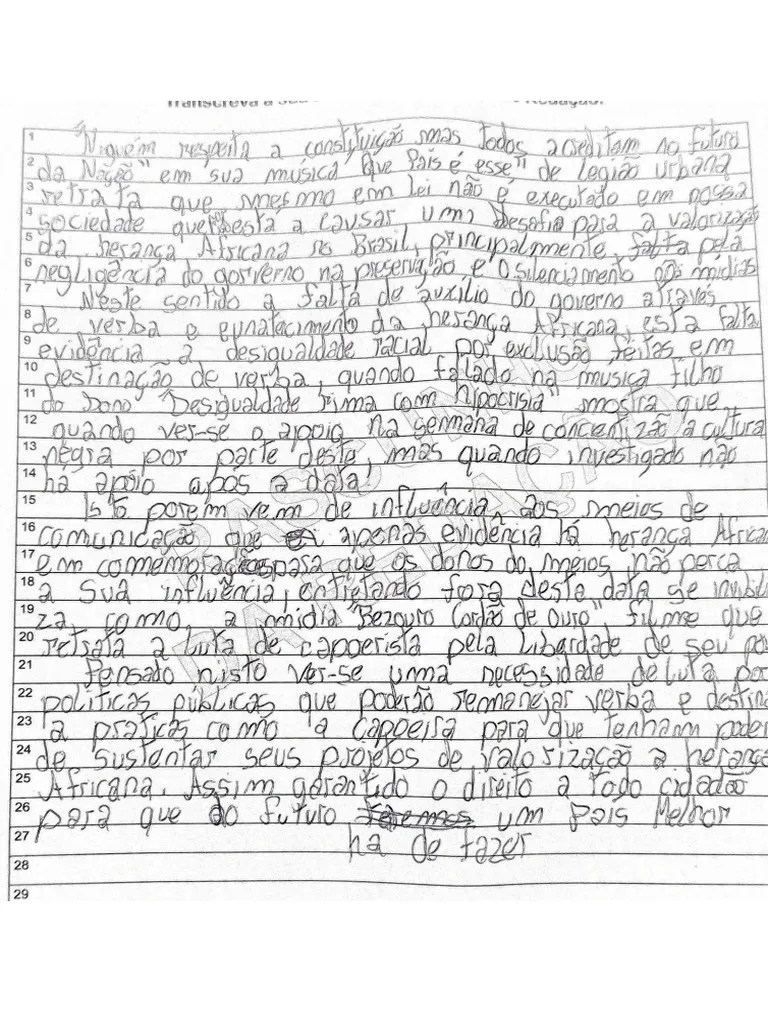 "Niguém respeita a constituição mas todos acreditam no futuro
da Nação" em sua música "Que País é esse" de legião urbana
retrata que mesmo em lei não é executado em nossa
sociedade que está a causar um desafio para a valorização
da herança Africana no Brasil, principalmente falta pela
negligência do gorverno na preservação e o silenciamento nas mídias
Neste sentido a falta de auxílio do governo através
de verba o da herança Africana, esta falta
evidência a desigualdade racial por exclusão feitas em
destinação de verba, quando falado na musica filho
do Dono "Desigualdade rima com hipocrisia" mostra que
quando ver-se o apoio na semana de concentizão a cultura
negra por parte deste, mas quando investigado não
há apóio após a data.
Isto porém vem de influência, aos meios de
comunicação que apenas evidência há herança African
em comemorações para que os donos do meios não perca
a sua influência, entretando fora deste data se invibili
za, como, a mídia "Bezouro Cordão de Ouro" filme que
retrata a luta de capoerista pela Liberdade de seu pov
Pensado nisto ver-se uma necessidade de luta por
políticas públicas que poderão remanejar verba e destina
a praticas como a capoeira para que tenham poder
de sustentar seus projetos de valorização a herança
Africana. Assim garantido o direito a todo cidadão
para que do futuro um País Melhor
ha de fazer